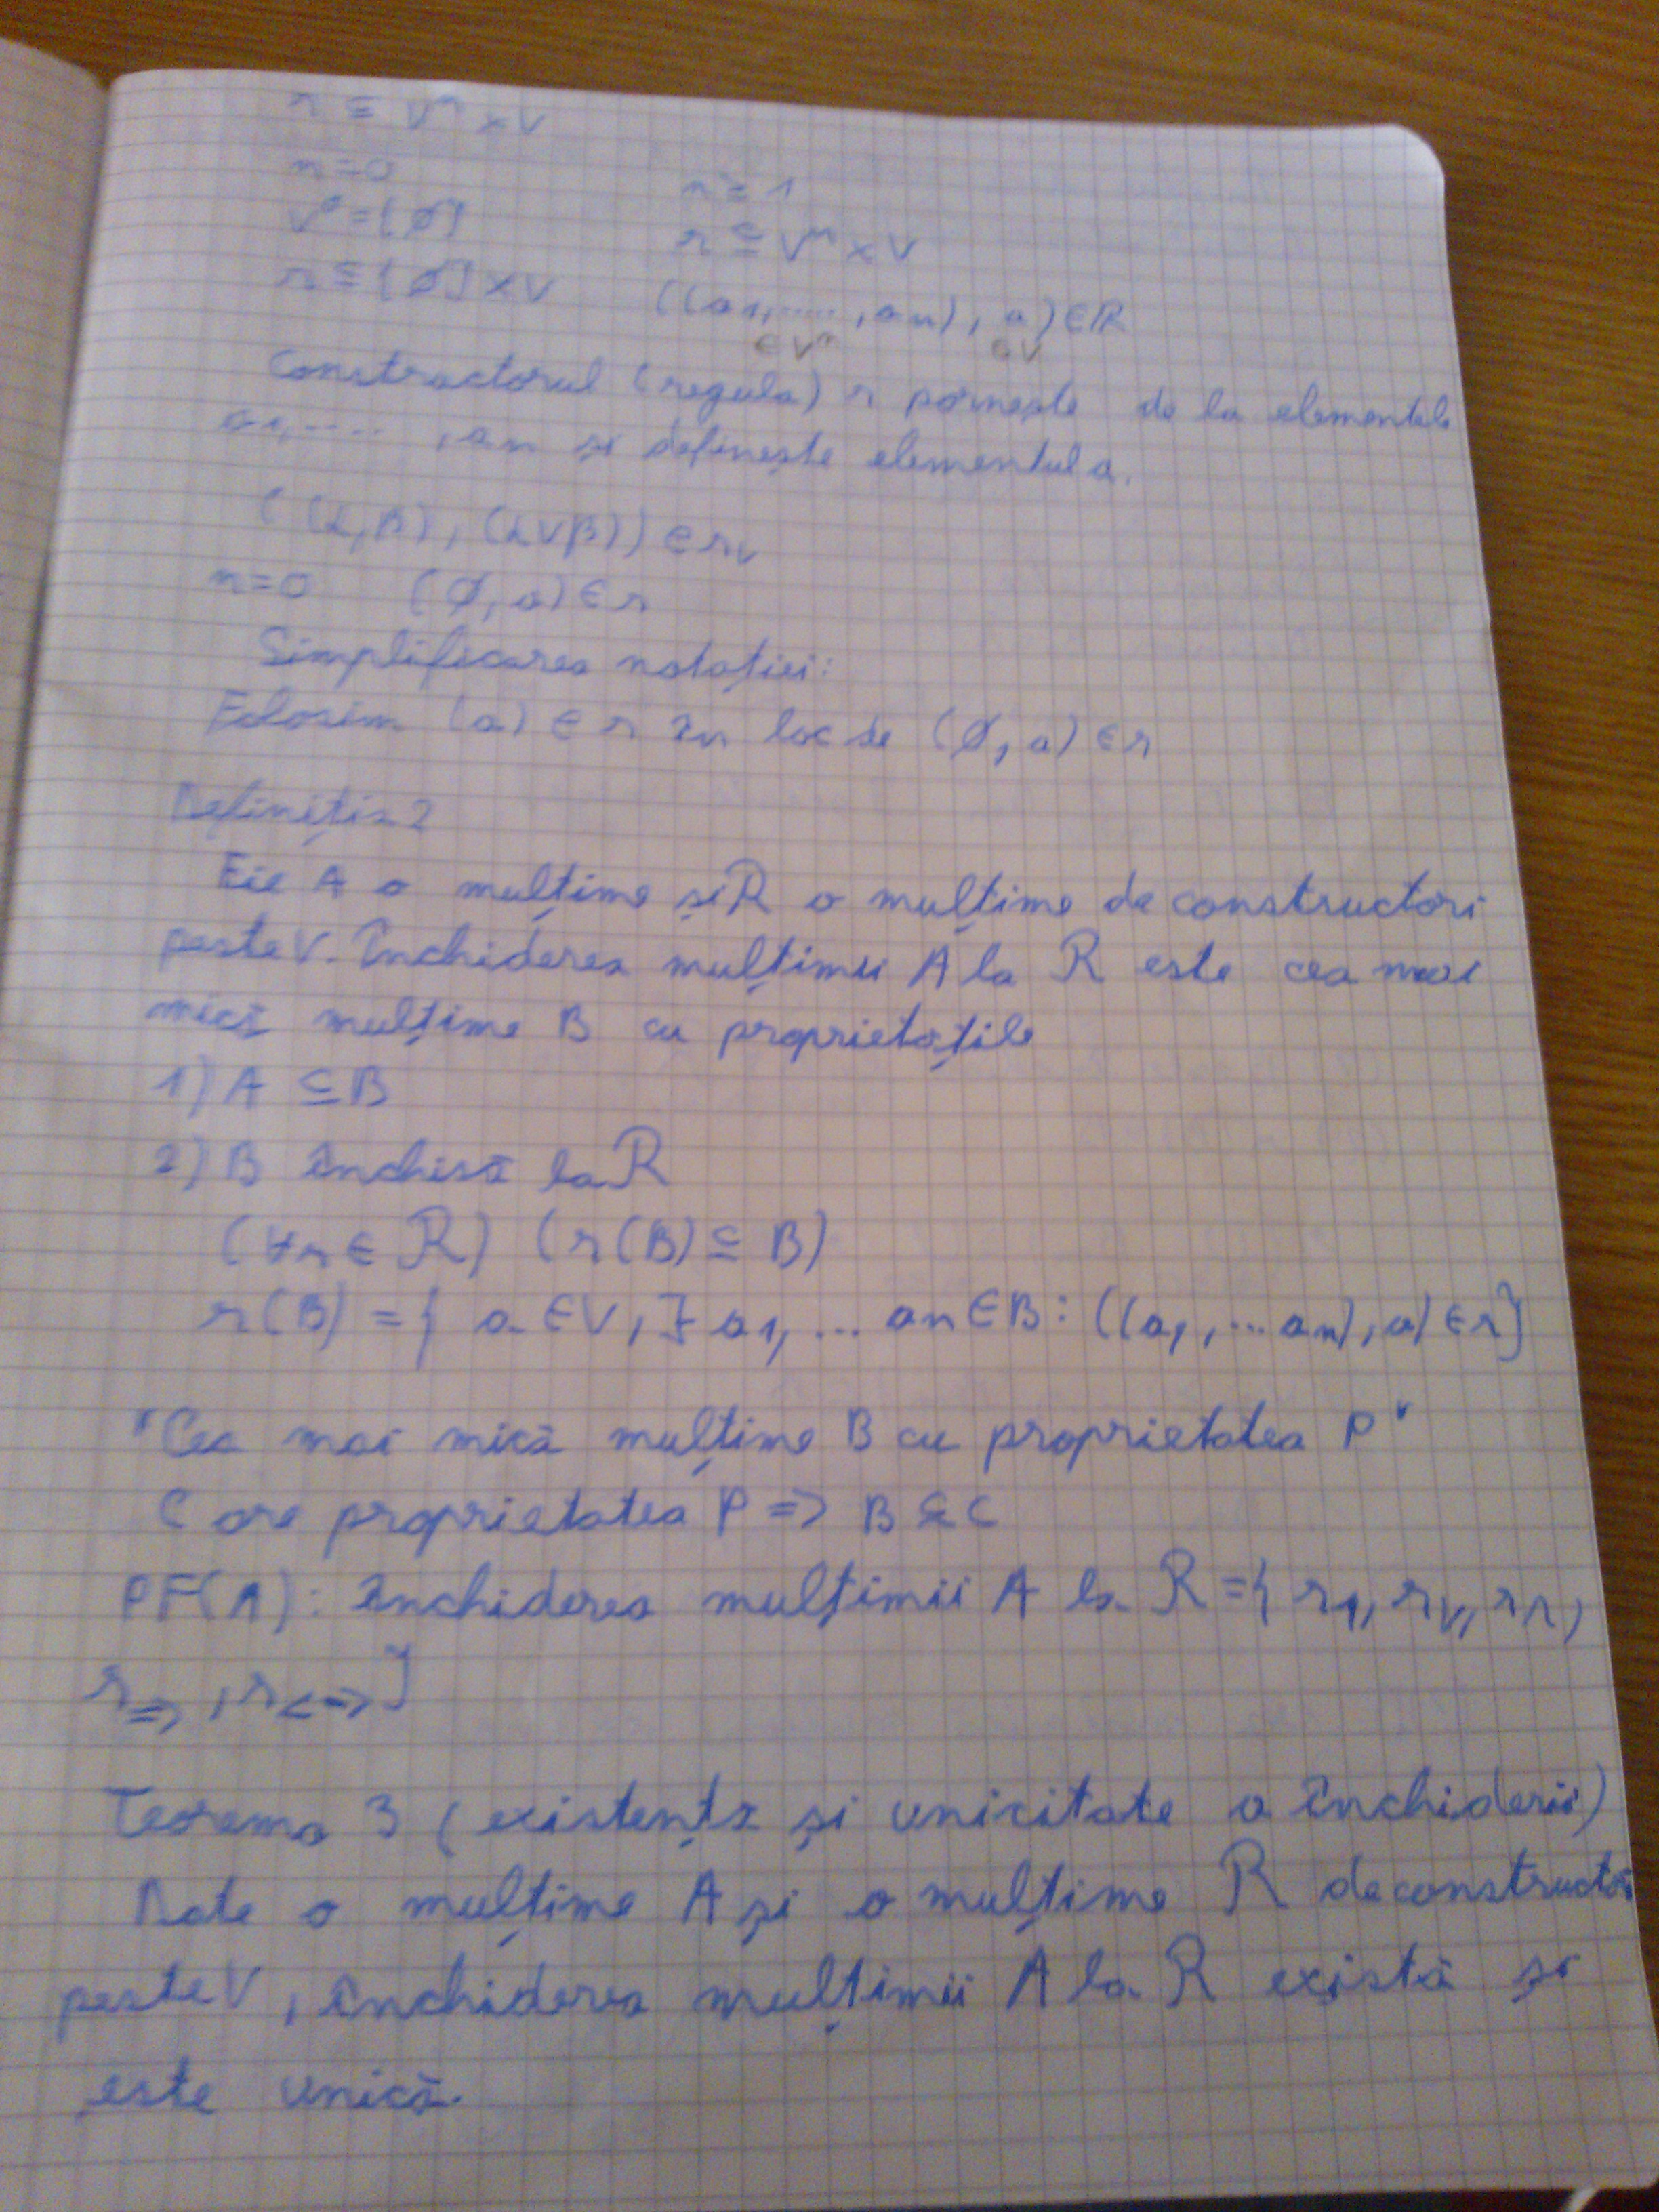 r ⊆ Vⁿ × V
n=0
V⁰={∅}
r ⊆ {∅} × V
n ≥ 1
r ⊆ Vⁿ × V
((a1, ...., an), a) ∈ R
∈Vⁿ ∈V
Constructorul (regula) r pornește de la elementele
a1, .... , an și definește elementul a.
((α, β), (α∨β)) ∈ r∨
n=0 (∅, a) ∈ r
Simplificarea notației:
Folosim (a) ∈ r în loc de (∅, a) ∈ r
Definiția 2
Fie A o mulțime și R o mulțime de constructori
peste V. Închiderea mulțimii A la R este cea mai
mică mulțime B cu proprietățile
1) A ⊆ B
2) B închisă la R
(∀r ∈ R) (r(B) ⊆ B)
r(B) = { a ∈ V, ∃ a1, ... an ∈ B : ((a1, ... an), a) ∈ r}
"Cea mai mică mulțime B cu proprietatea P"
C are proprietatea P => B ⊆ C
PF(A): închiderea mulțimii A la R = { r¬, r∨, r∧,
r=>, r<=>}
Teorema 3 (existența și unicitate a închiderii)
Date o mulțime A și o mulțime R de constructori
peste V, închiderea mulțimii A la R există și
este unică.